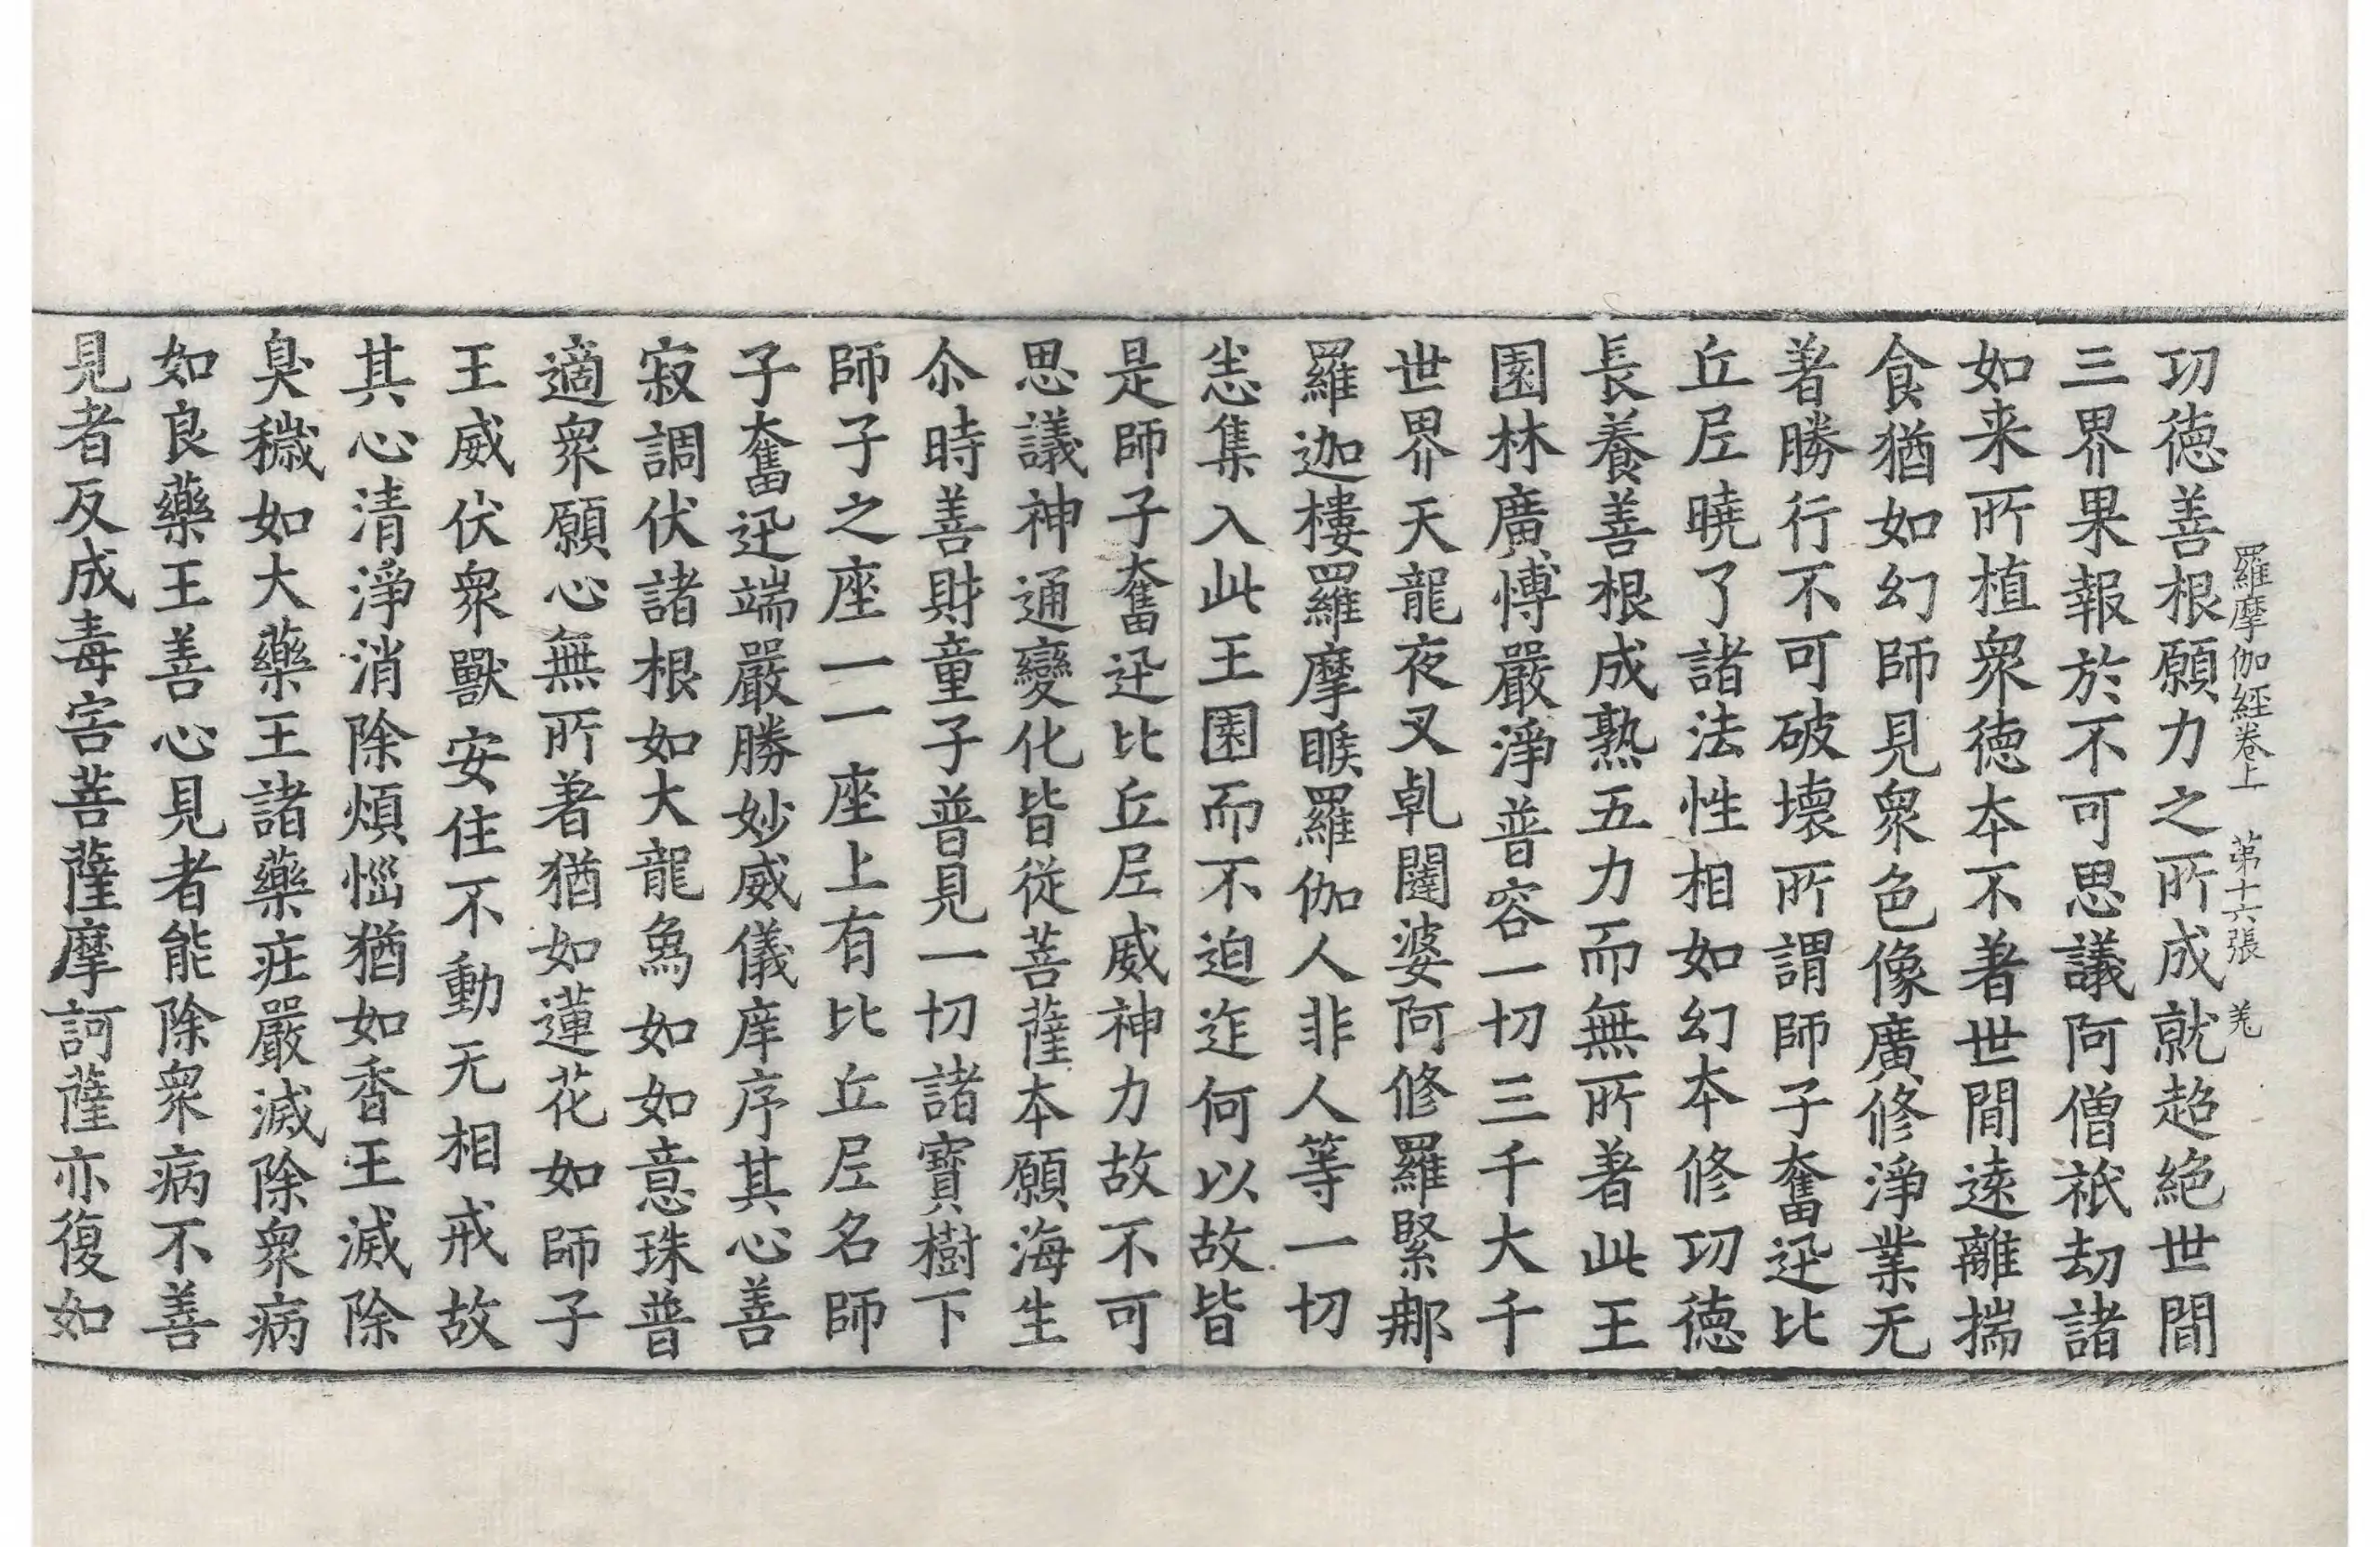 羅摩伽経卷上 第十六張 羌
功徳善根願力之所成就超絶世間
三界果報於不可思議阿僧祇劫諸
如来所植衆徳夲不著世間遠離揣
食猶如幻師見衆色像廣修淨業无
著勝行不可破壊所謂師子奮迅比
丘𡰱曉了諸法性相如幻夲修功徳
長養善根成熟五力而無所著此王
園林廣愽嚴淨普容一切三千大千
世界天龍夜叉乹闥婆阿修羅緊那
羅迦樓羅摩睺羅伽人非人等一切
悉集入此王園而不迫迮何以故皆
是師子奮迅比丘𡰱威神力故不可
思議神通變化皆從菩薩夲願海生
尒時善財童子普見一切諸寶樹下
師子之座一一座上有比丘𡰱名師
子奮迅端嚴勝妙威儀庠序其心善
寂調伏諸根如大龍象如如意珠普
適衆願心無所著猶如蓮花如師子
王威伏衆獸安住不動无相戒故
其心清淨消除煩惱猶如香王滅除
臭穢如大藥王諸藥㽵嚴滅除衆病
如良藥王善心見者能除衆病不善
見者反成毒害菩薩摩訶薩亦復如